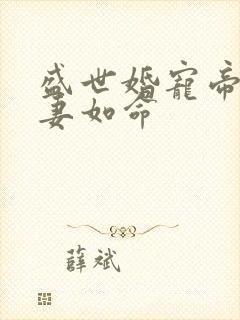 盛世婚宠帝
妻如命
薛斌